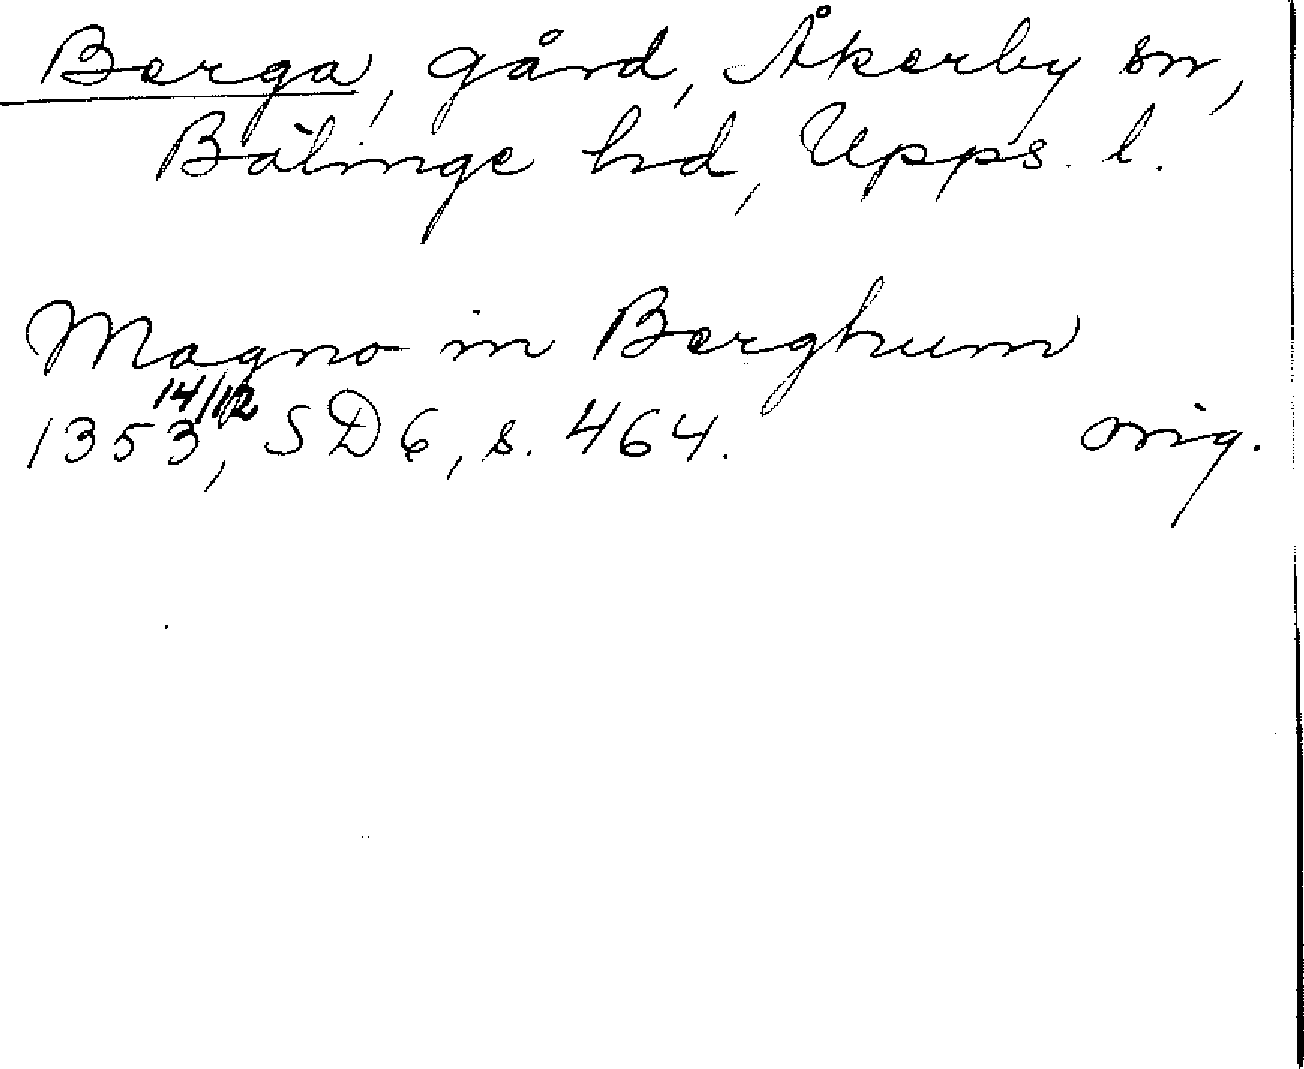 Berga, gård, Åkerby sn,
Bälinge hd, Upps. l.
Magno in Berghum
14/12
1353, SD 6, s. 464. orig.